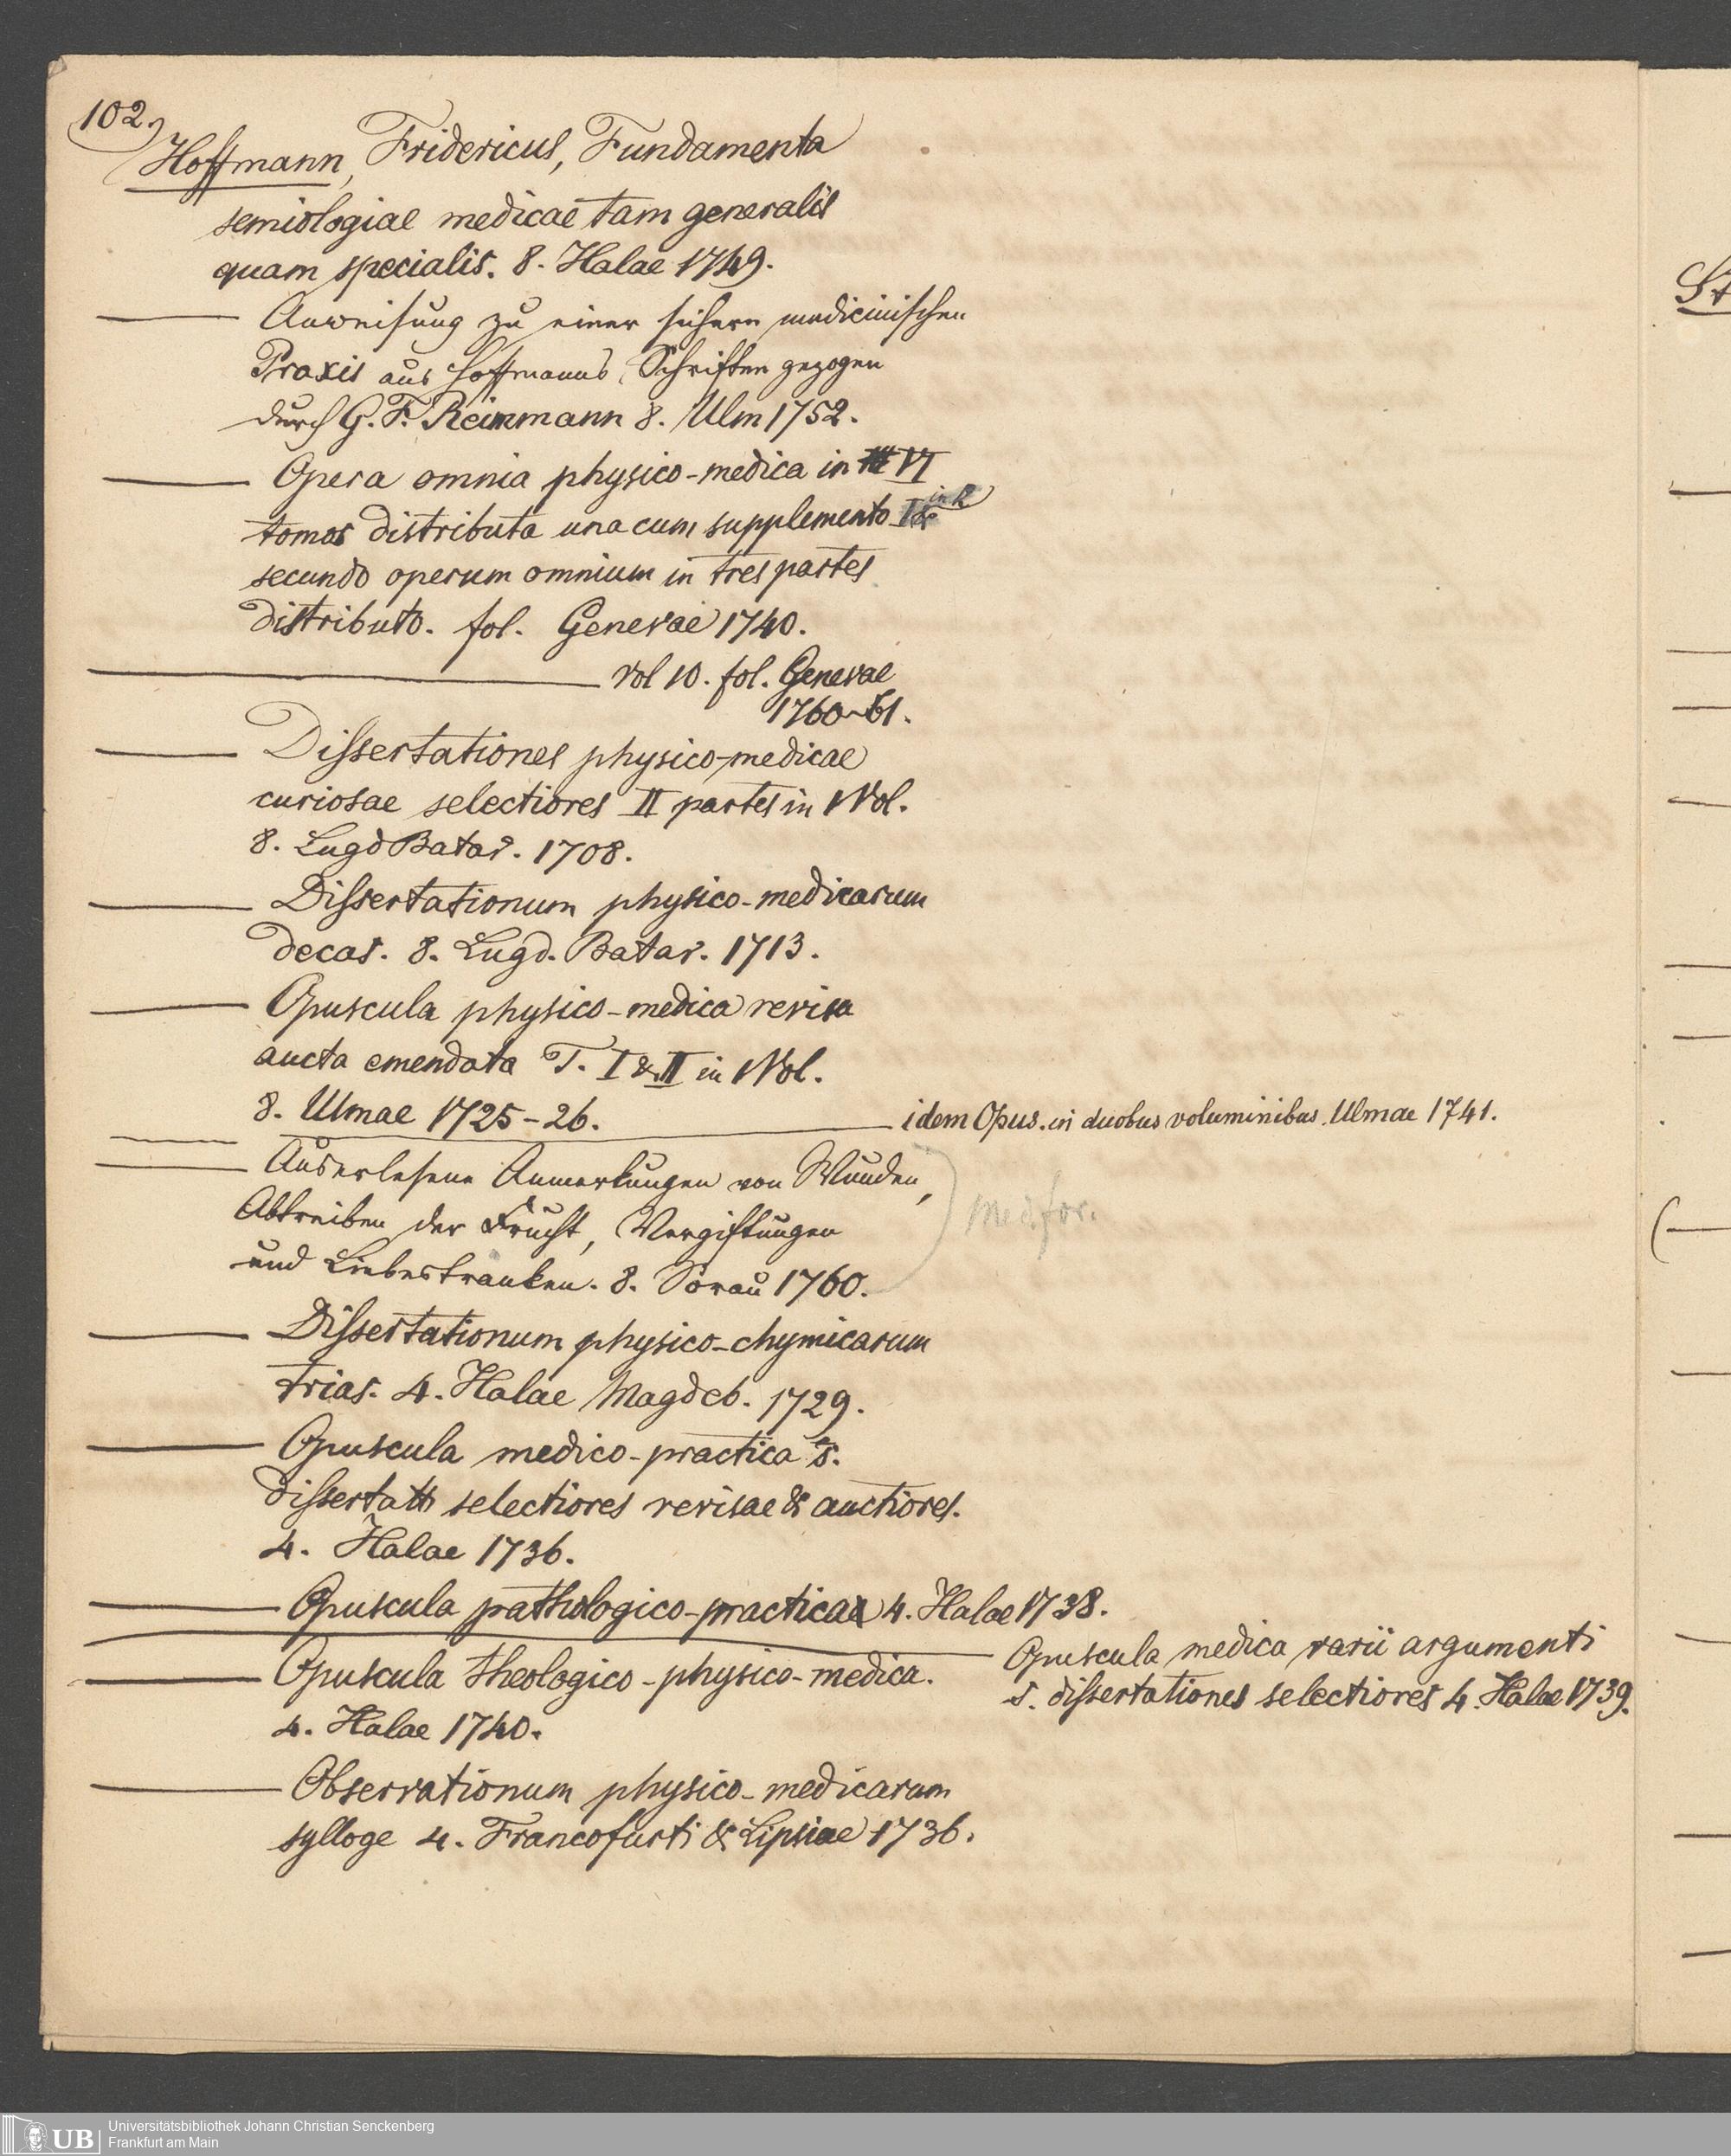 102.
Hoffmann, Fridericus, Fundamenta
semiologiae medicae tam generalis
quam specialis. 8. Halae 1749.
Anweisung zu einer sichern medicinischen
Praxis aus Hoffmanns Schriften gezogen
durch G. F. Reimmann 8. Ulm 1752.
Opera omnia physico-medica in VI
tomos distributa una cum supplemento in 2
secundo operum omnium in tres partes
distributo. fol. Genevae 1740.
Vol 10. fol. Genevae
1760-61.
Dissertationes physico-medicae
curiosae selectiores II partes in 1 Vol.
8. Lugd Batav. 1708.
Dissertationum physico-medicarum
decas. 8. Lugd. Batav. 1713.
Opuscula physico-medica revisa
aucta emendata T. I & II in 1 Vol.
8. Ulmae 1725-26.
idem Opus. in duobus voluminibus. Ulmae 1741.
Auserlesene Anmerkungen von Wunden,
Abtreiben der Frucht, Vergiftungen
und Liebestranken. 8. Sorau 1760.
Med. for.
Dissertationum physico-chymicarum
trias. 4. Halae Magdeb. 1729.
Opuscula medico-practica s.
dissertatt selectiores revisae & auctiores.
4. Halae 1736.
Opuscula pathologico-practica 4. Halae 1738.
Opuscula medica varii argumenti
s. dissertationes selectiores 4. Halae 1739.
Opuscula theologico-physico-medica.
4. Halae 1740.
Observationum physico-medicarum
sylloge 4. Francofurti & Lipsiae 1736.
St
UB
Universitätsbibliothek Johann Christian Senckenberg
Frankfurt am Main